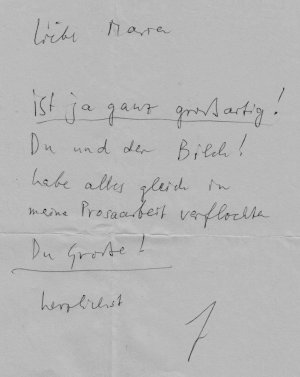 Liebe
ist ja ganz großartig!
Du und der Bilch!
habe alles gleich in
meine Prosaarbeit verflochten
Du Große!
herzlichst